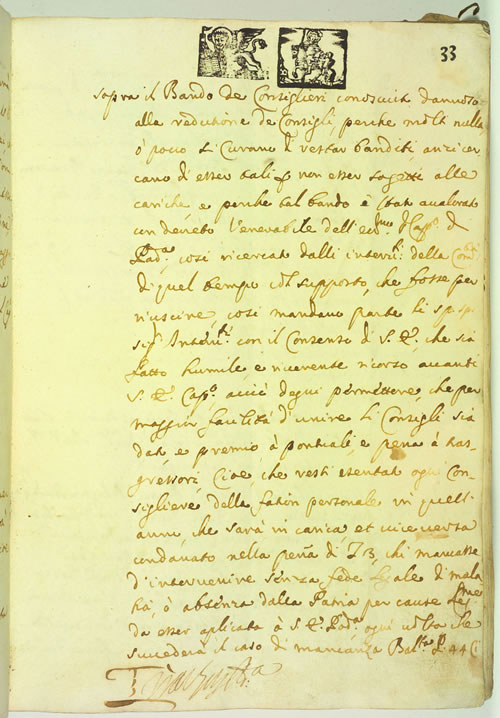 33
sopra il Bando de Consiglieri conosciuto dannoso
alla redutione de Consigli, perche molti nulla
ò poco si Curano di restar banditi, anzi cer
cano di esser tali p non esser sogetti alle
cariche e perche tal bando è stato avalorato
con decreto Venerabile dell'ecc.mo Cap.o di
Pad.a così ricercato dalli interv.ti della
di quel tempo col supposto, che fosse per
riuscire, così mandano parte li sp.sp.
sig.ri Interv.ti con il Consenso di S. E. che sia
fatto humile, e riverente ricorso avanti
S. E. Cap.o acciò degni permettere, che per
maggior facilità d'unire li Consigli sia
dato, e premio à pontuali, e pena à tras-
gressori, Cioè, che resti esentato ogni Con-
sigliere dalla fation personale in quell'
anno, che sarà in carica, et viceversa
condanato nella pena di 3, chi mancasse
d'intervenire senza fede legale di mala
tia, ò absenza dalla Patria per cause
da esser aplicata à S. ogni volta che
succederà il caso di mancanza Bal.te P. 44 C